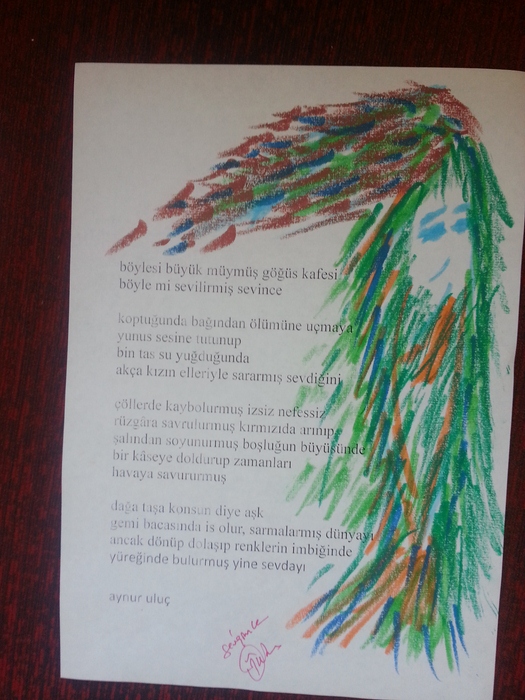 böylesi büyük müymüş göğüs kafesi
böyle mi sevilirmiş sevince
koptuğunda bağından ölümüne uçmaya
yunus sesine tutunup
bin tas su yuğduğunda
akça kızın elleriyle sararmış sevdiğini
çöllerde kaybolurmuş izsiz nefessiz
rüzgâra savrulurmuş kırmızıda arınıp
şalından soyunurmuş boşluğun büyüsünde
bir kâseye doldurup zamanları
havaya savururmuş
dağa taşa konsun diye aşk
gemi bacasında is olur, sarmalarmış dünyayı
ancak dönüp dolaşıp renklerin imbiğinde
yüreğinde bulurmuş yine sevdayı
aynur uluç